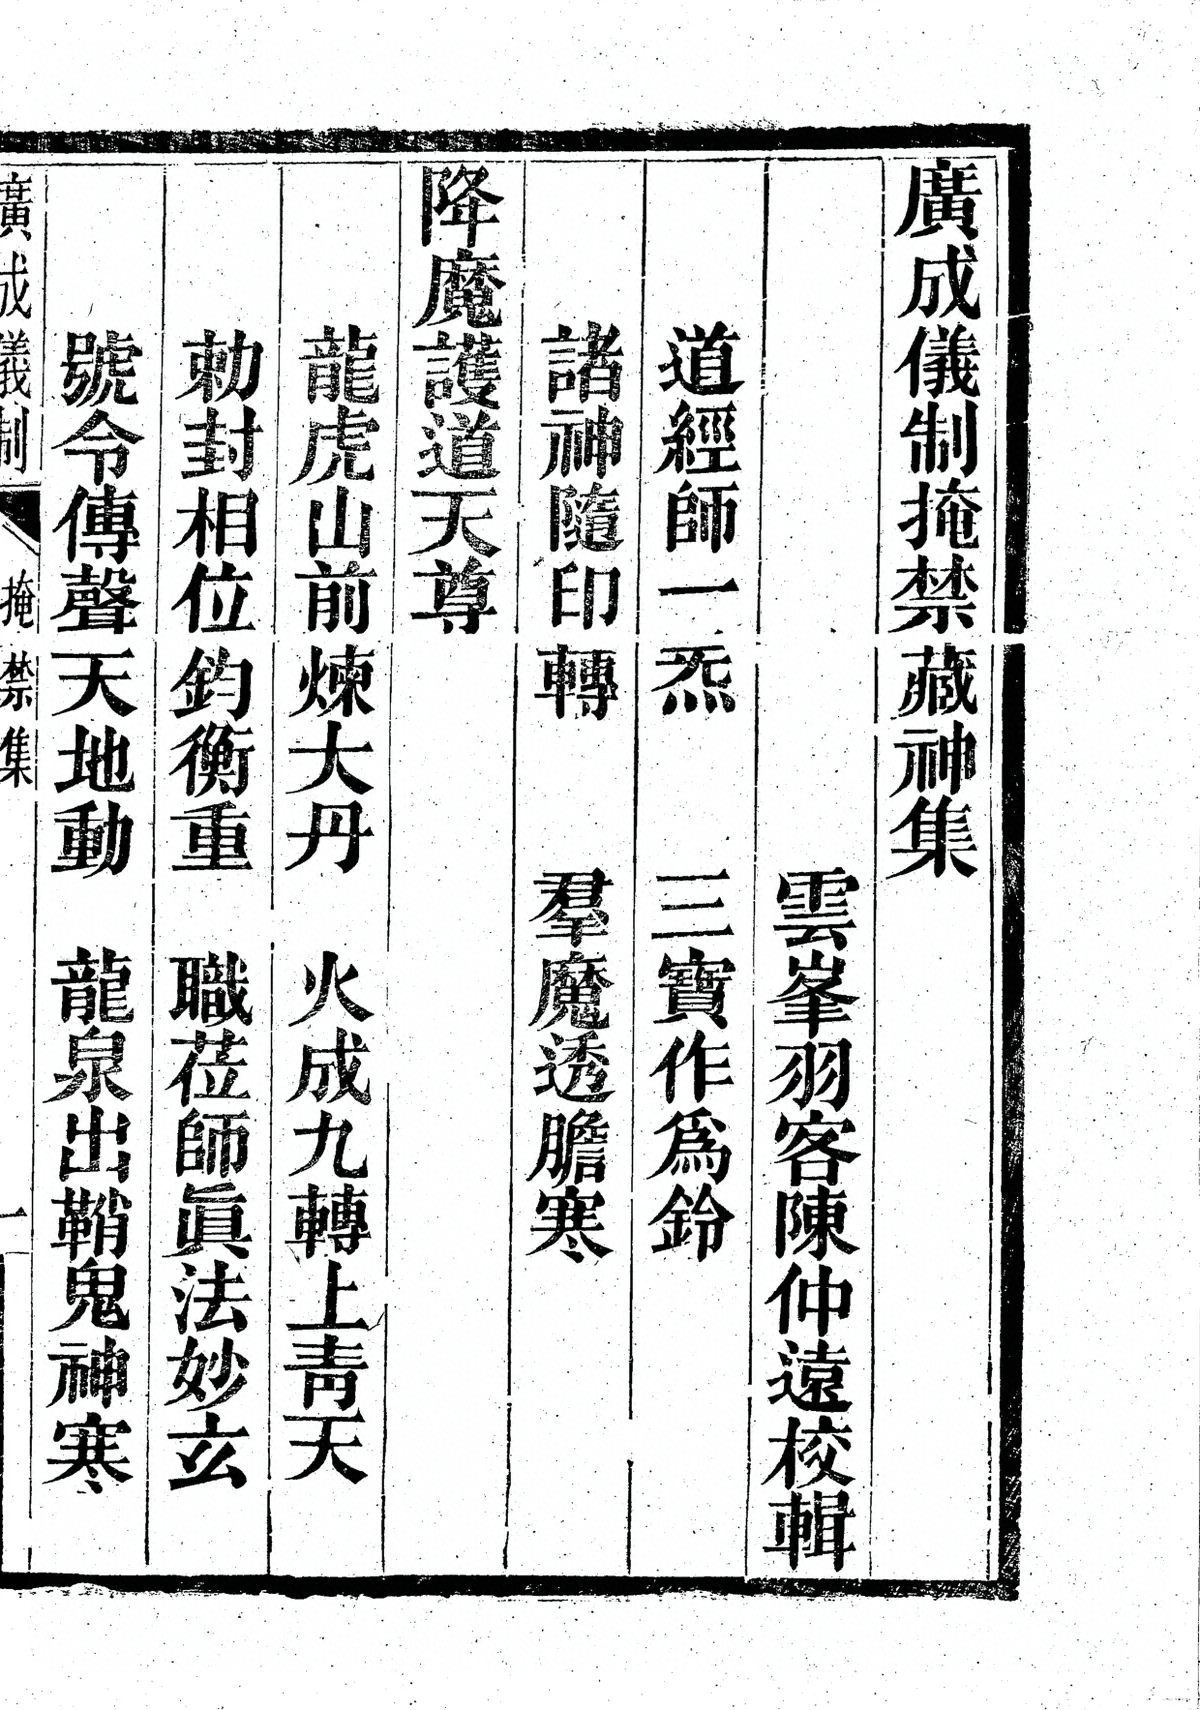 廣成儀制掩禁藏神集
雲峯羽客陳仲遠校輯
道經師一炁　三寶作爲鈴
諸神隨印轉　羣魔透膽寒
降魔護道天尊
龍虎山前煉大丹　火成九轉上靑天
勅封相位鈞衡重　職莅師眞法妙玄
號令傳聲天地動　龍泉出鞘鬼神寒
廣成儀制　掩禁集　一